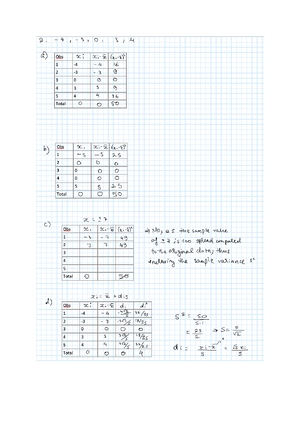 2. -4, -3, 0, 3, 4
a)
Obs xi xi-x̄ (xi-x̄)²
1 -4 -4 16
2 -3 -3 9
3 0 0 0
4 3 3 9
5 4 4 16
Total 0 0 50
b)
Obs xi xi-x̄ (xi-x̄)²
1 -5 -5 25
2 0 0 0
3 0 0 0
4 0 0 0
5 5 5 25
Total 0 0 50
c) x = ±7
Obs xi xi-x̄ (xi-x̄)²
1 -7 -7 49
2 7 7 49
3
4
5
Total 0 50
→ No, as the sample value
of ±7 is too spread compared
to the original data, thus
the sample variance s²
d) xi = x̄ + di s
Obs xi xi-x̄ di di²
1 -4 -4
2 -3 -3
3 0 0 0 0
4 3 3
5 4 4
Total 0 0 0 4
s² = 50
5-1
= 25
2
→ s = 5
√2
di = xi-x̄
s